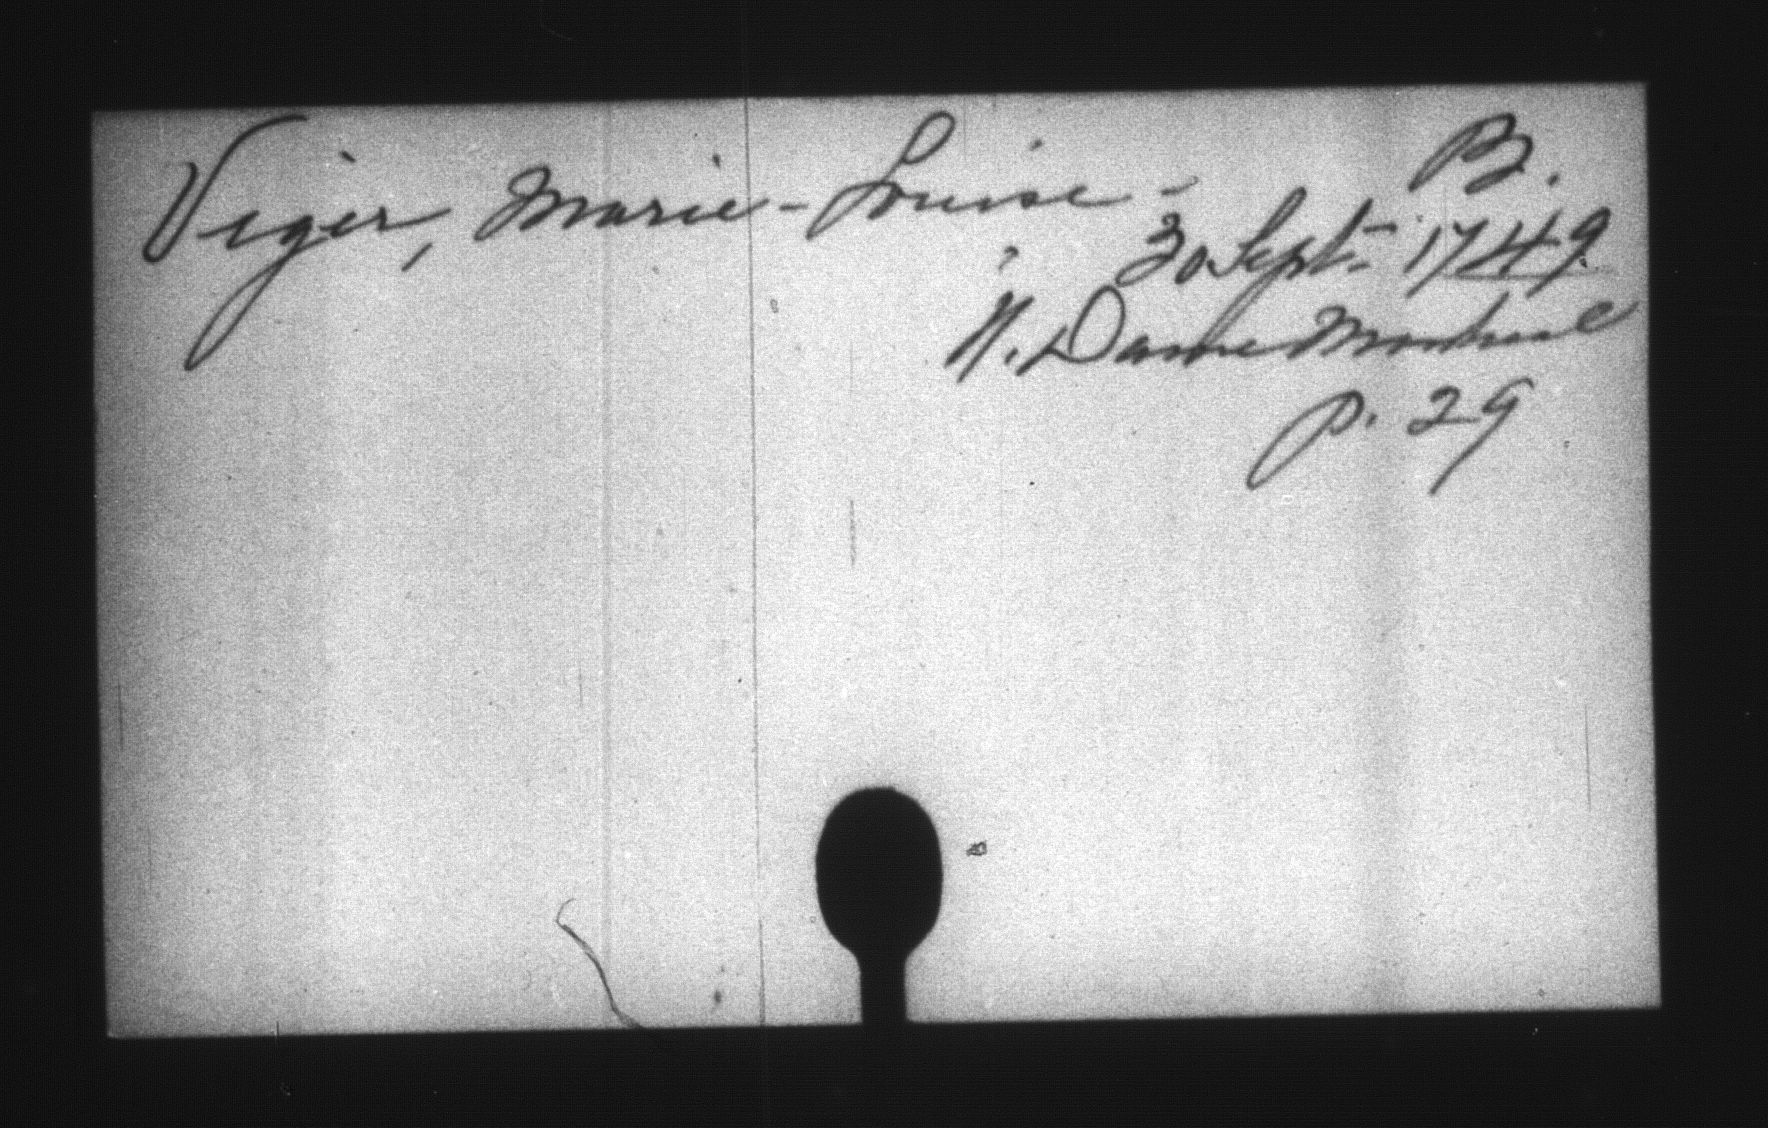 Viger, Marie-Louise - B.
30 Sept- 1749.
N. Dame Montreal
p. 29